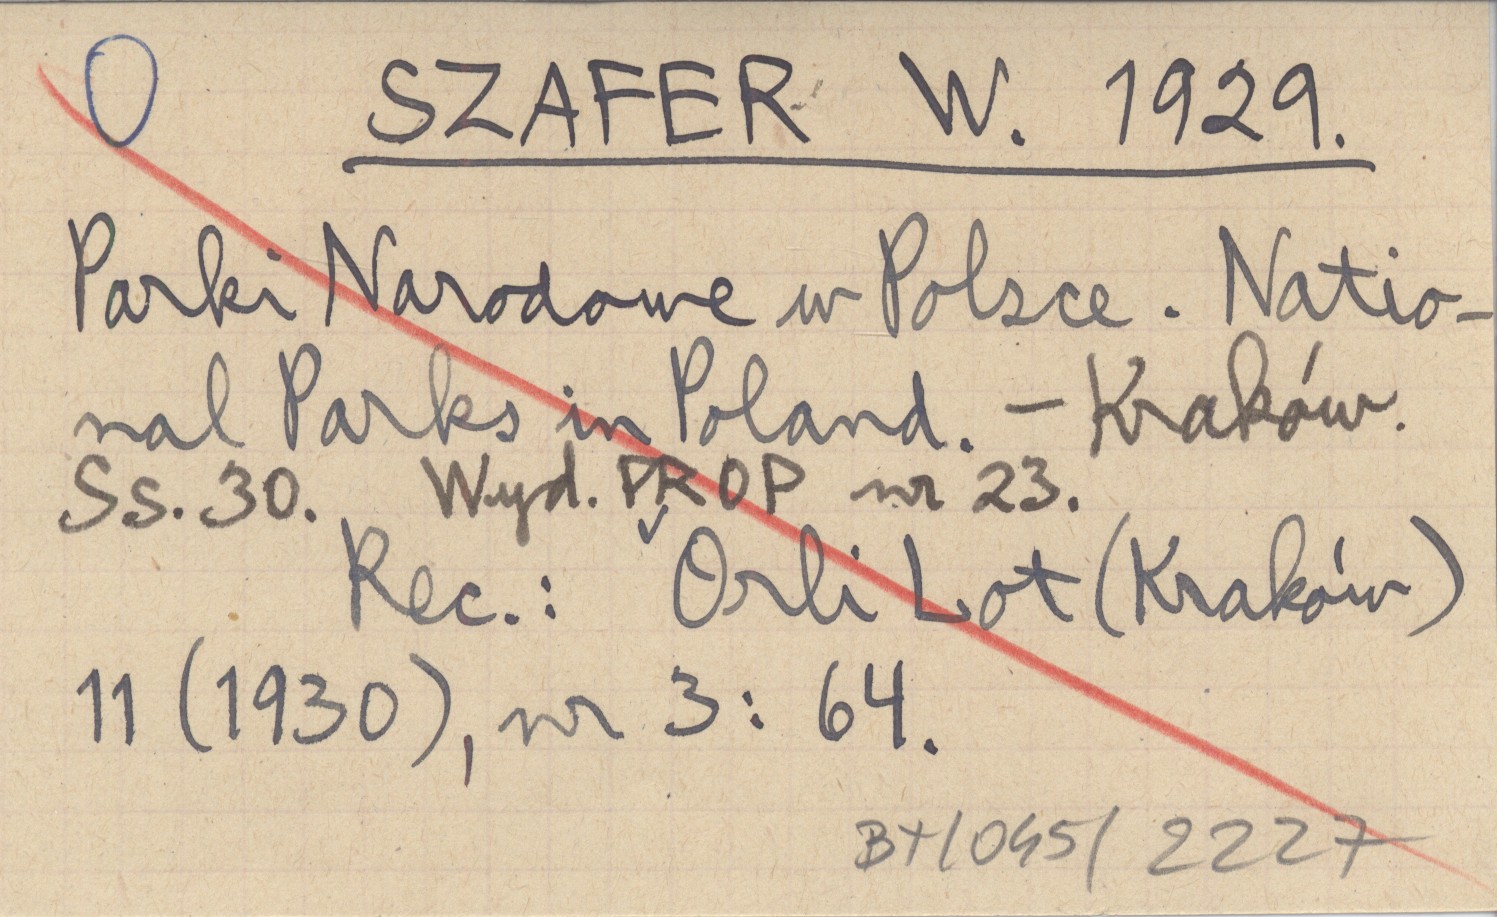 O SZAFER W. 1929.
Parki Narodowe w Polsce. Natio-
nal Parks in Poland. – Kraków.
Ss. 30. Wyd. PROP nr 23.
Rec.: Orli Lot (Kraków)
11 (1930), nr 3: 64.
BT/045/2227